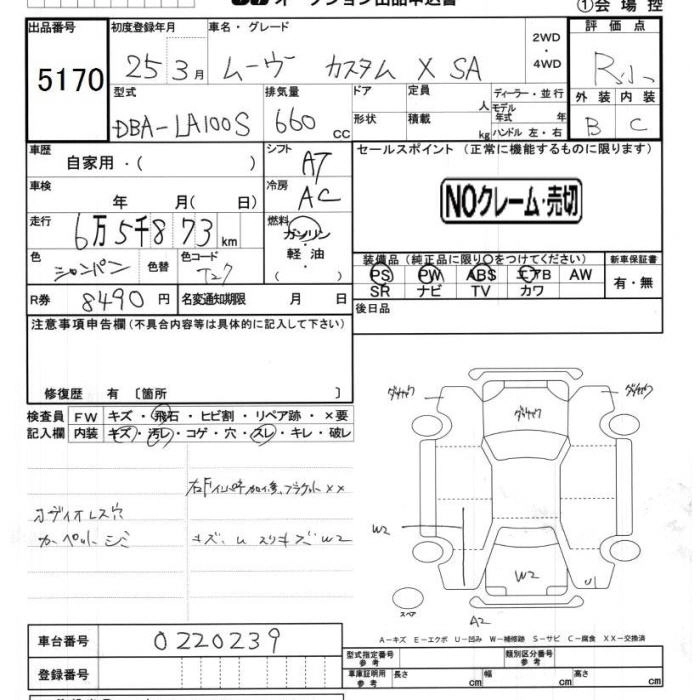 ①会場控
出品番号 初度登録年月 車名・グレード 2WD・4WD 評価点
5170 25 3月 ムーヴ カスタム X SA R小
型式 排気量 ドア 定員 人 ディーラー・並行 外装 内装
DBA-LA100S 660 cc 形状 積載 kg モデル年式 年 ハンドル 左・右 B C
車歴 自家用・( ) シフト AT セールスポイント (正常に機能するものに限ります)
車検 年 月( 日) 冷房 AC NOクレーム・売切
走行 6万5千873km 燃料 ガソリン・軽油・( )
色 シャンパン 色替 色コード T27 装備品 (純正品に限り○をつけてください) 新車保証書
PS PW ABS エアB AW 有・無
SR ナビ TV カワ
R券 8490円 名変通知期限 月 日 後日品
注意事項申告欄(不具合内容等は具体的に記入して下さい)
修復歴 有 〔箇所 〕
検査員 FW キズ・飛石・ヒビ割・リペア跡・×要
記入欄 内装 キズ・汚レ・コゲ・穴・スレ・キレ・破レ
XX
オーディオレス穴
カーペットシミ
W2
W2
W2
U1
スペア
A2
A-キズ E-エクボ U-凹み W-補修跡 S-サビ C-腐食 XX-交換済
車台番号 0220239
型式指定番号 参考 類別区分番号 参考
登録番号 車庫証明用 参考 長さ cm 幅 cm 高さ cm